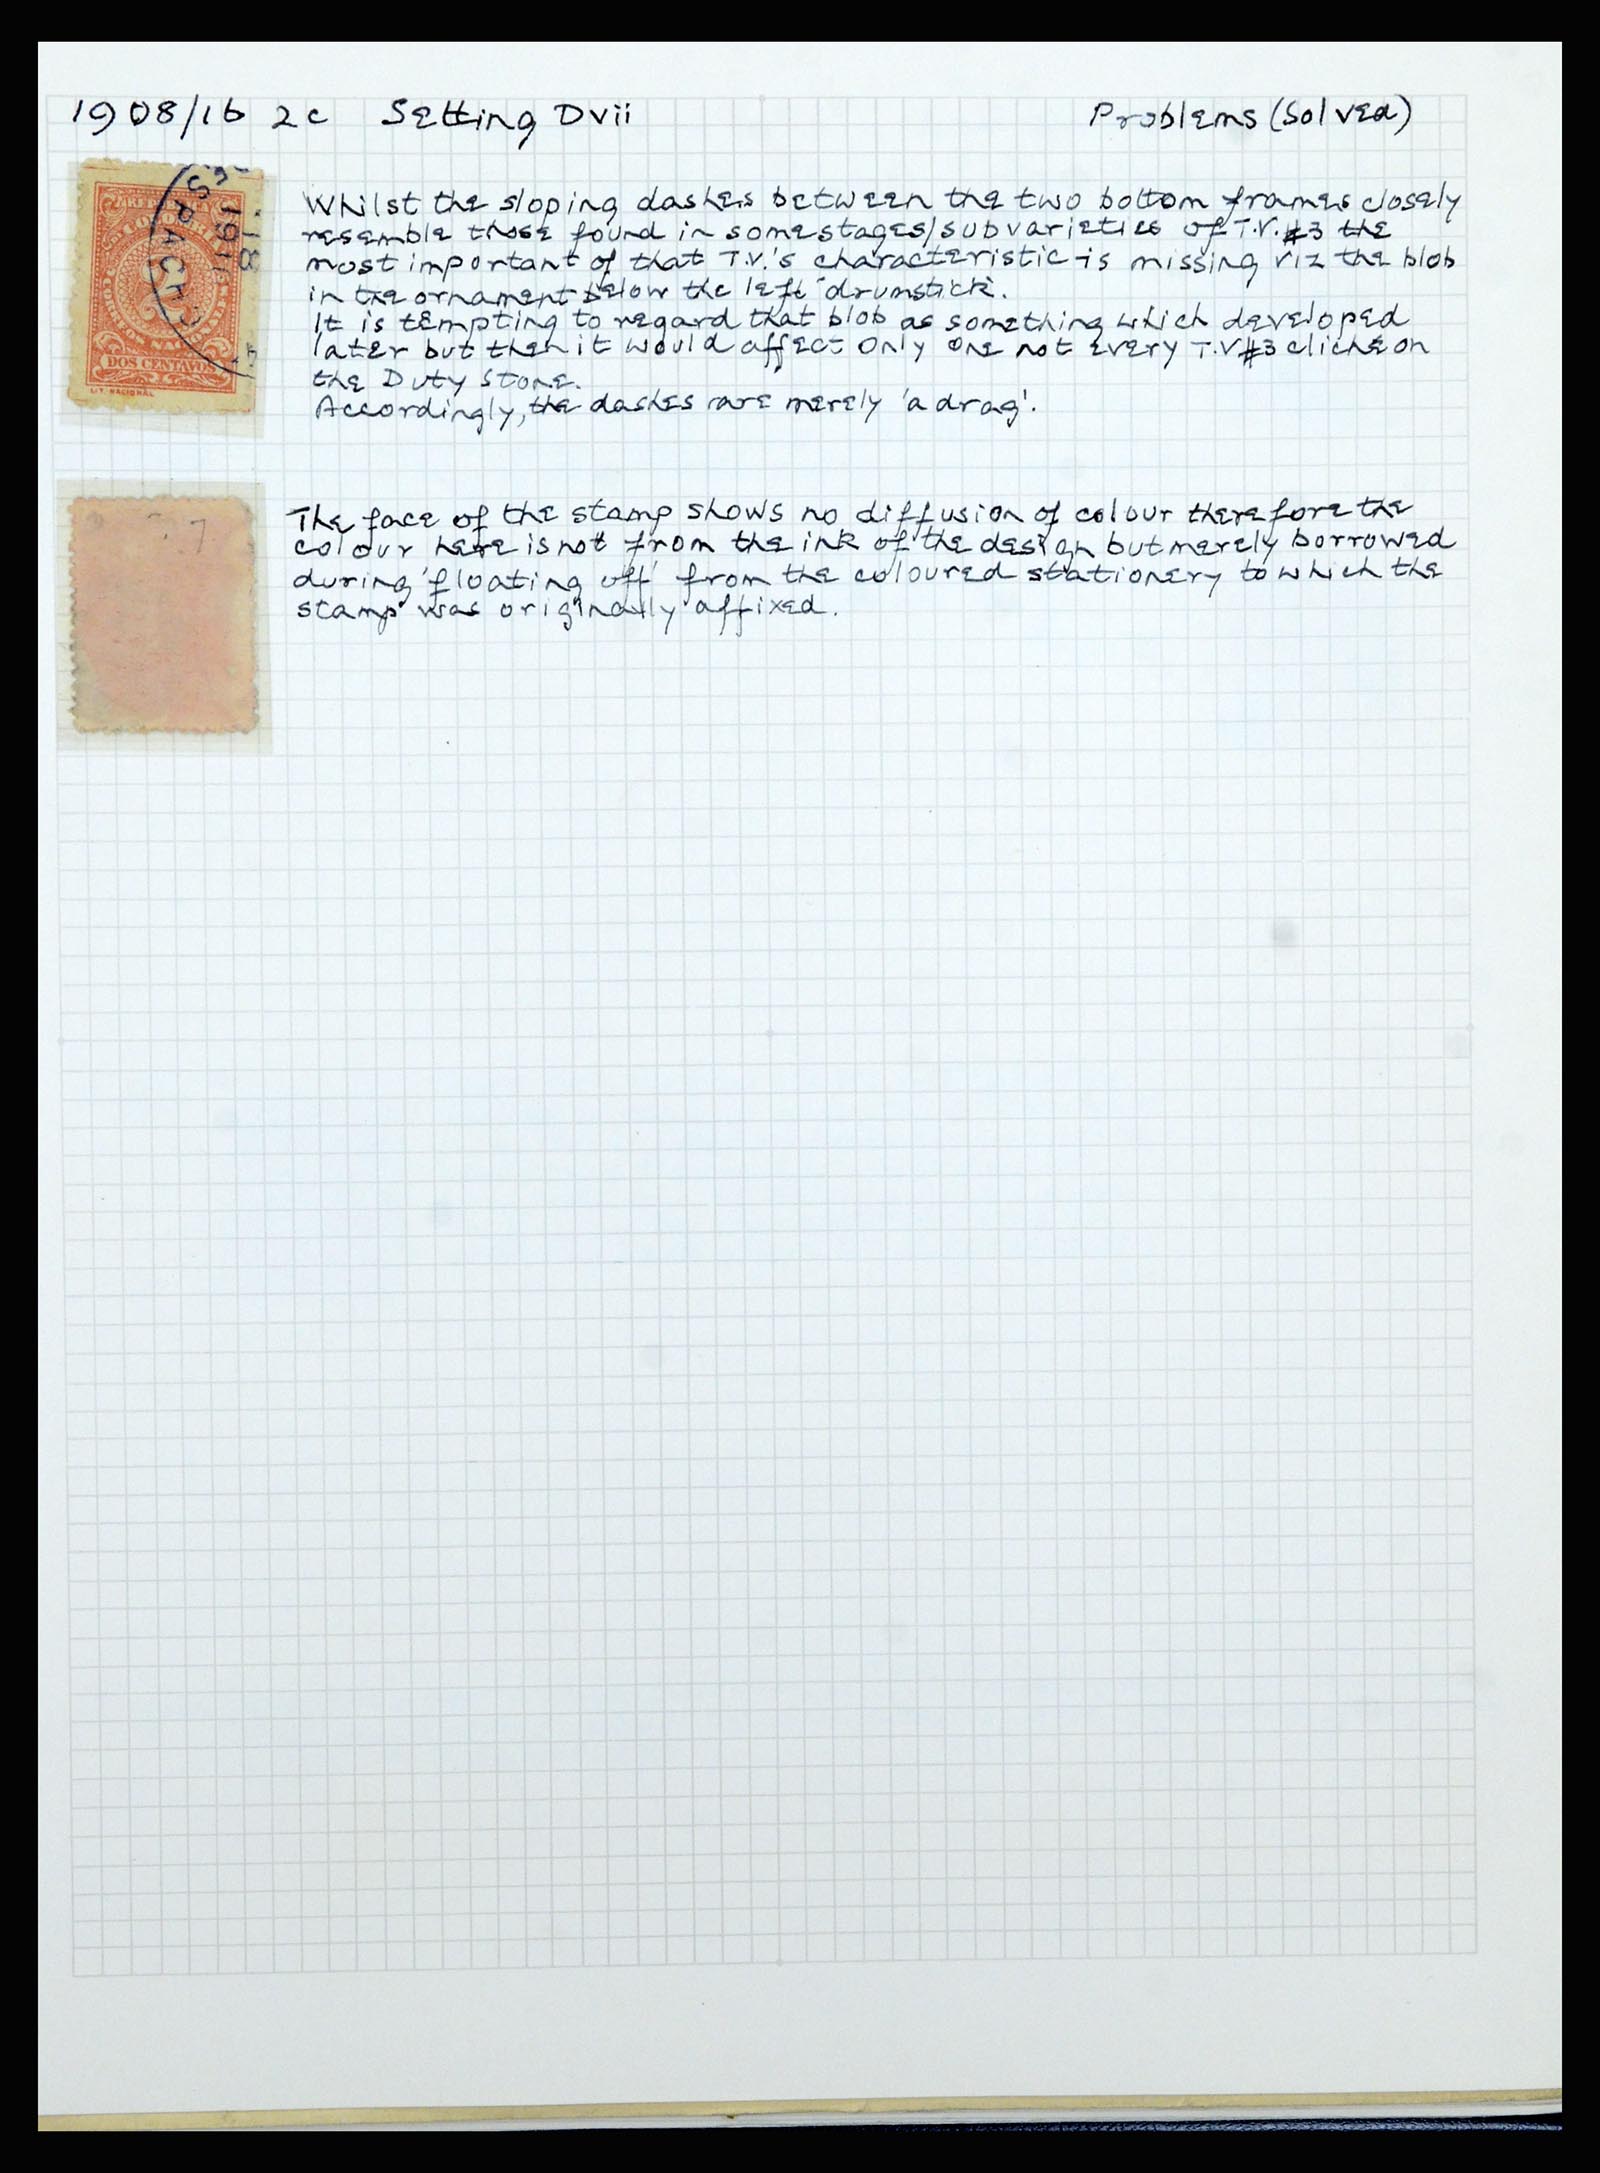 1908/16 2c Setting Dvii Problems (Solved)
Whilst the sloping dashes between the two bottom frames closely
resemble those found in some stages/subvarieties of T.V. #3 the
most important of that T.V.'s characteristic is missing viz the blob
in the ornament below the left 'drumstick'.
It is tempting to regard that blob as something which developed
later but then it would affect only one not every T.V #3 cliche on
the Duty Stone.
Accordingly, the dashes are merely 'a drag'.
REPUBLICA
DE COLOMBIA
CORREOS NACIONALES
2
DOS CENTAVOS
LIT. NACIONAL
18
1911
The face of the stamp shows no diffusion of colour therefore the
colour here is not from the ink of the design but merely borrowed
during 'floating off' from the coloured stationery to which the
stamp was originally affixed.